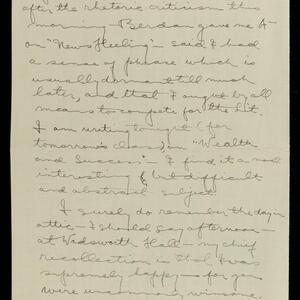 after the rhetoric criticism this
morning - Berdan gave me A-
on "News Heeling" - said I had
a sense of phrase which is
usually dormant till much
later, and that I ought by all
means to compete for the Lit.
I am writing tonight (for
tomorrow's class) on "Wealth
and Success". I find it a most
interesting but difficult
and abstract subject.
I surely do remember the day in
attic - I should say afternoon -
at Wadsworth Hall - my chief
recollection is that I was
supremely happy - for you
were uncommonly winsome